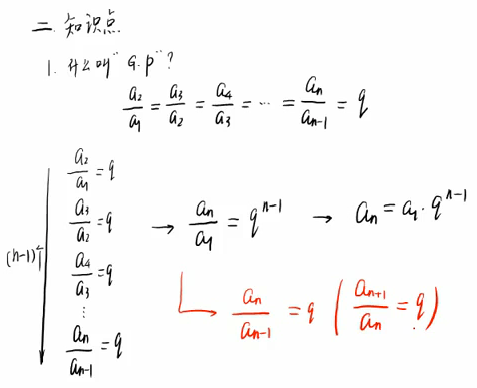 二. 知识点
1. 什么叫"G.P"?
a₂/a₁ = a₃/a₂ = a₄/a₃ = ⋯ = aₙ/aₙ₋₁ = q
(n-1)个
a₂/a₁ = q
a₃/a₂ = q
a₄/a₃ = q
⋮
aₙ/aₙ₋₁ = q
→ aₙ/a₁ = qⁿ⁻¹ → aₙ = a₁·qⁿ⁻¹
↳ aₙ/aₙ₋₁ = q (aₙ₊₁/aₙ = q)